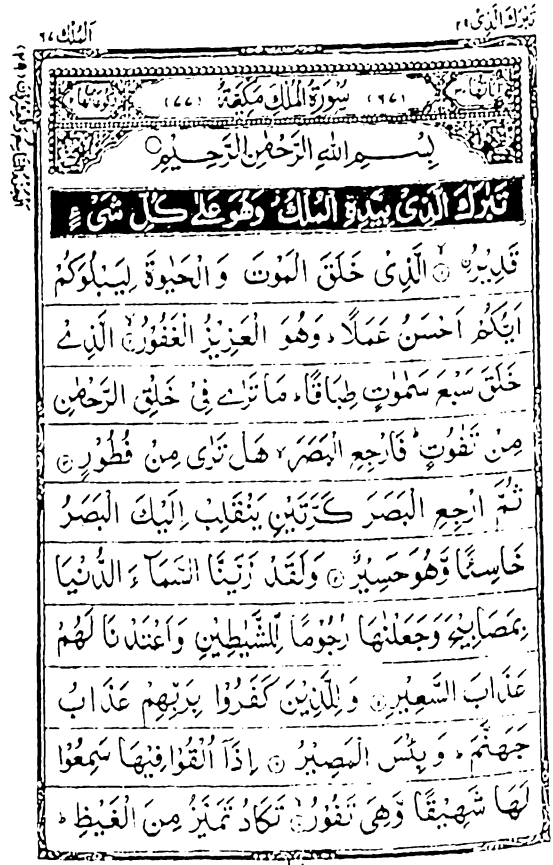 تَبٰرَكَ الَّذِیْ ٢٩
اَلْمُلْك ٦٧
(٦٧) سُوْرَةُ الْمُلْكِ مَكِّيَّةٌ (٧٧)
بِسْمِ اللّٰهِ الرَّحْمٰنِ الرَّحِيْمِ
تَبٰرَكَ الَّذِیْ بِيَدِهِ الْمُلْكُ وَهُوَ عَلٰی كُلِّ شَیْءٍ
قَدِيْرُ ۨ ۙ الَّذِیْ خَلَقَ الْمَوْتَ وَ الْحَيٰوةَ لِيَبْلُوَكُمْ
اَيُّكُمْ اَحْسَنُ عَمَلًا ؕ وَهُوَ الْعَزِيْزُ الْغَفُوْرُ ۙ الَّذِیْ
خَلَقَ سَبْعَ سَمٰوٰتٍ طِبَاقًا ؕ مَا تَرٰی فِیْ خَلْقِ الرَّحْمٰنِ
مِنْ تَفٰوُتٍ ؕ فَارْجِعِ الْبَصَرَ ۙ هَلْ تَرٰی مِنْ فُطُوْرٍ ٣
ثُمَّ ارْجِعِ الْبَصَرَ كَرَّتَيْنِ يَنْقَلِبْ اِلَيْكَ الْبَصَرُ
خَاسِئًا وَّهُوَ حَسِيْرٌ ٤ وَلَقَدْ زَيَّنَّا السَّمَآءَ الدُّنْيَا
بِمَصَابِيْحَ وَجَعَلْنٰهَا رُجُوْمًا لِّلشَّيٰطِيْنِ وَاَعْتَدْنَا لَهُمْ
عَذَابَ السَّعِيْرِ ٥ وَ لِلَّذِيْنَ كَفَرُوْا بِرَبِّهِمْ عَذَابُ
جَهَنَّمَ ؕ وَ بِئْسَ الْمَصِيْرُ ٦ اِذَآ اُلْقُوْا فِيْهَا سَمِعُوْا
لَهَا شَهِيْقًا وَّهِیَ تَفُوْرُ ۙ تَكَادُ تَمَيَّزُ مِنَ الْغَيْظِ ؕ